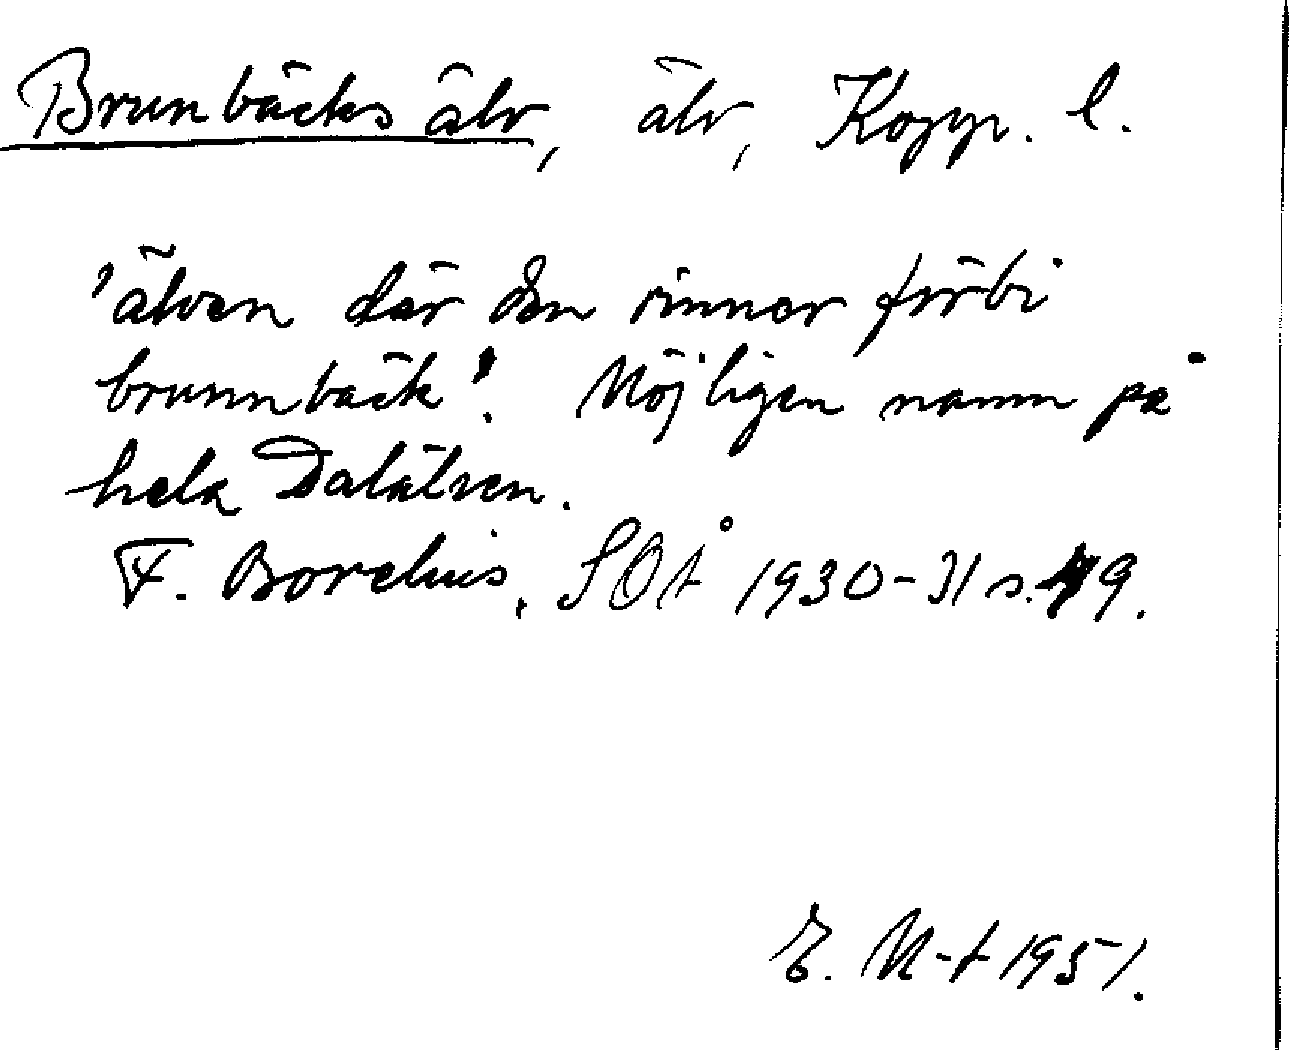 Brunbäcks älv, älv, Kopp. l.
'älven där den rinner förbi
brunnbäck'. Möjligen namn på
hela Dalälven.
F. Borelius, SOÅ 1930-31 s. 49.
E. N-t 1951.